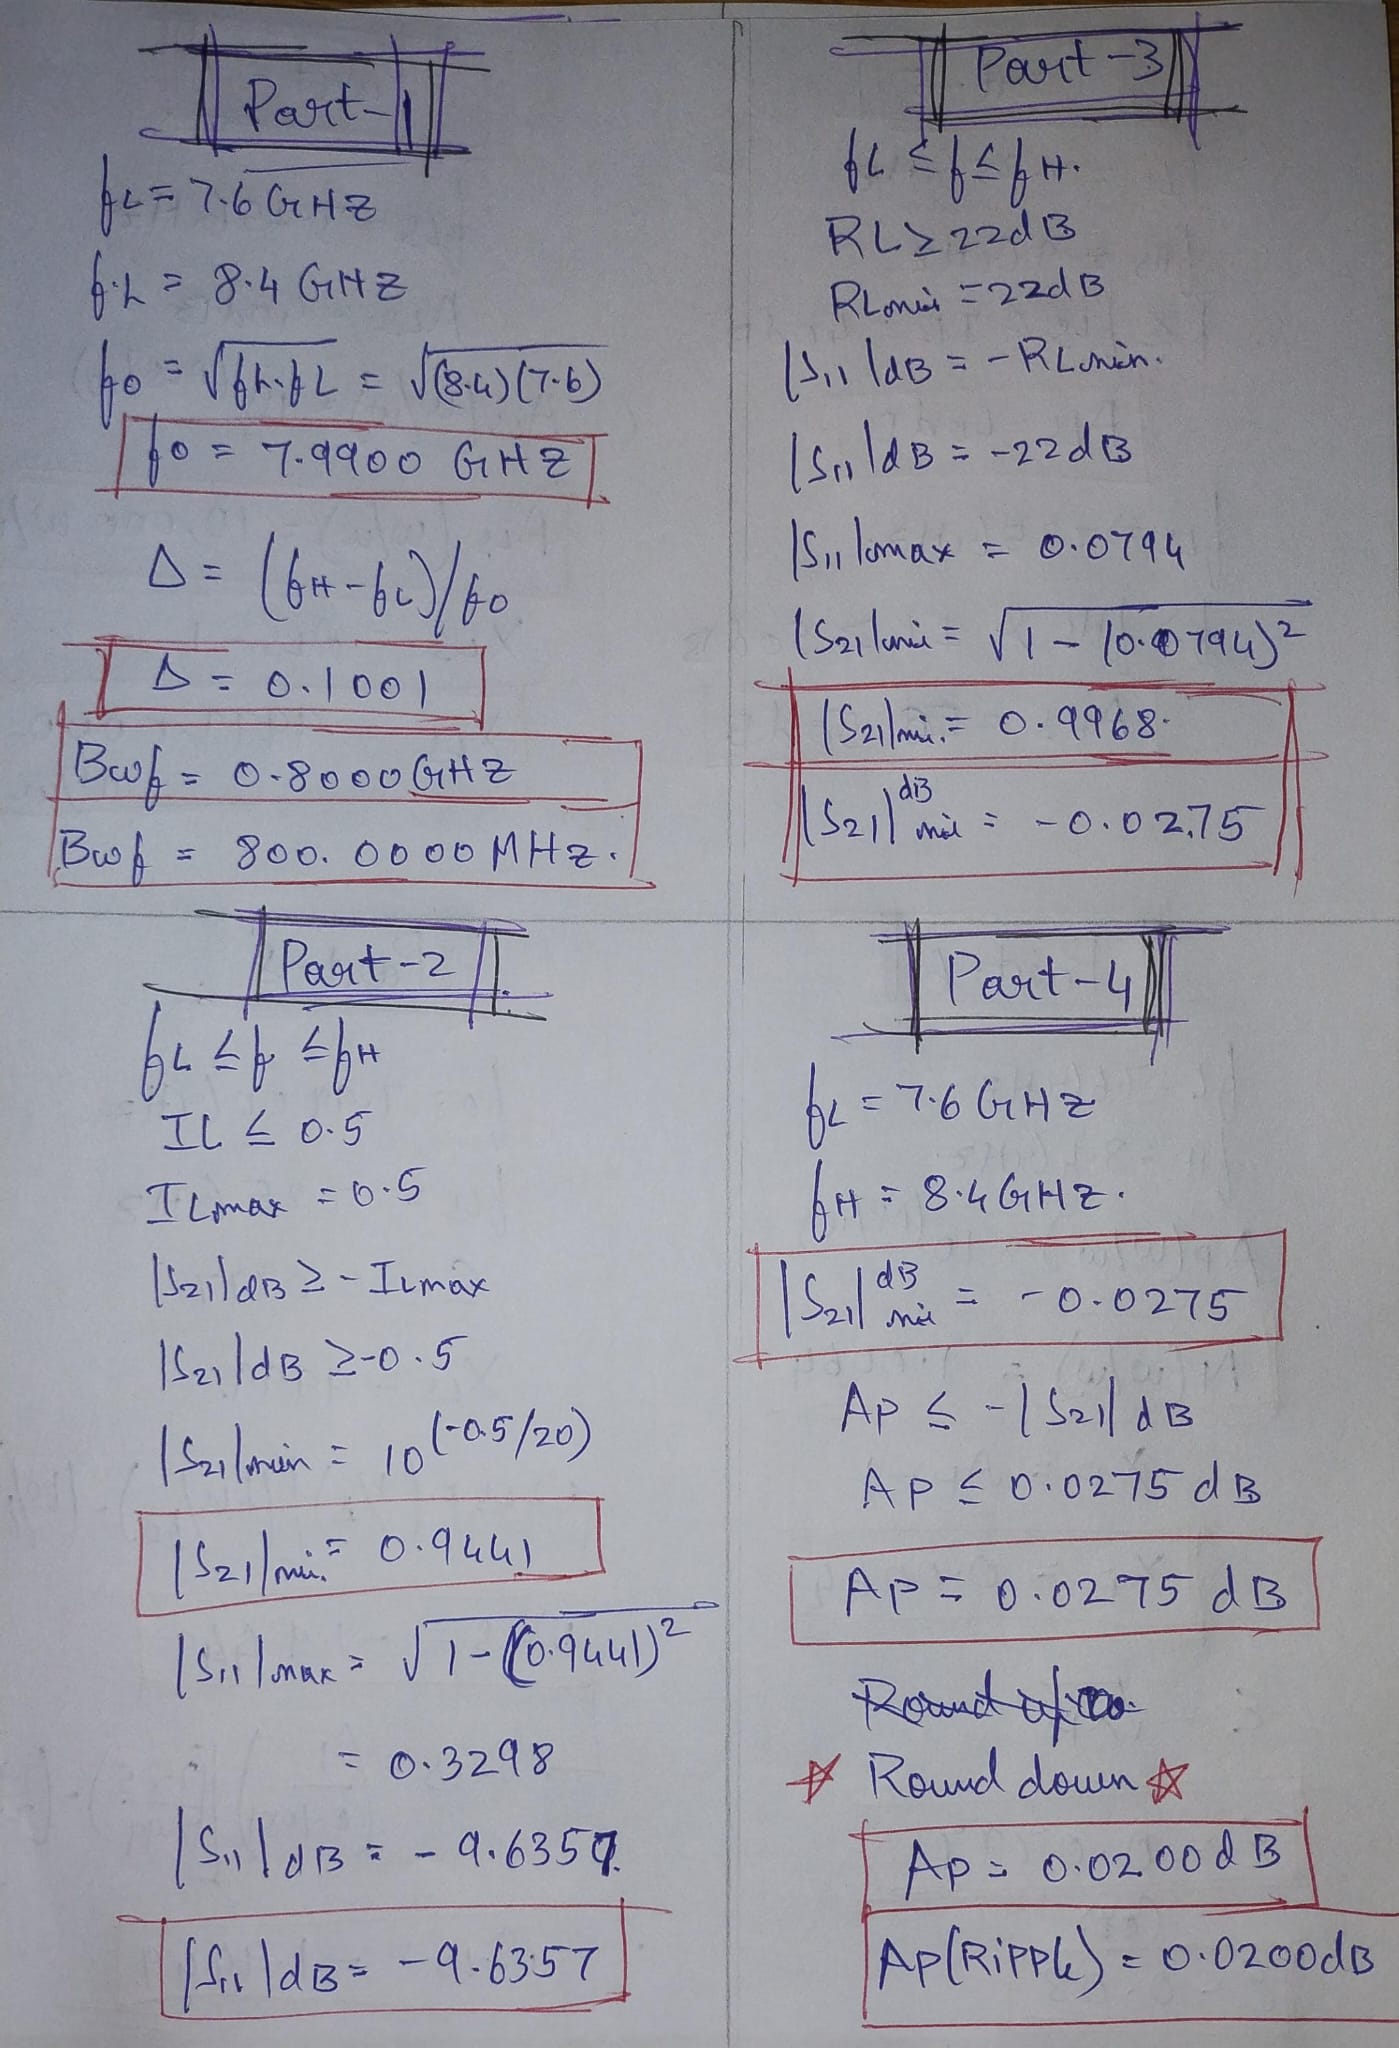 Part-1
fL = 7.6 GHZ
f.h = 8.4 GHZ
f0 = √fh.fL = √(8.4)(7.6)
f0 = 7.9900 GHZ
Δ = (fH-fL)/f0
Δ = 0.1001
Bwf = 0.8000 GHZ
Bwf = 800.0000 MHZ.
Part-2
fL ≤ f ≤ fH
IL ≤ 0.5
ILmax = 0.5
|S21|dB ≥ -ILmax
|S21|dB ≥ -0.5
|S21|min = 10^(-0.5/20)
|S21|min. = 0.9441
|S11|max = √1-(0.9441)²
= 0.3298
|S11|dB = -9.6357.
|S11|dB = -9.6357
Part-3
fL ≤ f ≤ fH.
RL ≥ 22dB
RLmin = 22dB
|S11|dB = -RLmin.
|S11|dB = -22dB
|S11|max = 0.0794
|S21|min = √1-(0.0794)²
|S21|min. = 0.9968.
|S21|dB min = -0.0275
Part-4
fL = 7.6 GHZ
fH = 8.4 GHZ.
|S21|dB min = -0.0275
Ap ≤ -|S21|dB
Ap ≤ 0.0275 dB
Ap = 0.0275 dB
☆ Round down ☆
Ap = 0.0200 dB
Ap(Ripple) = 0.0200dB